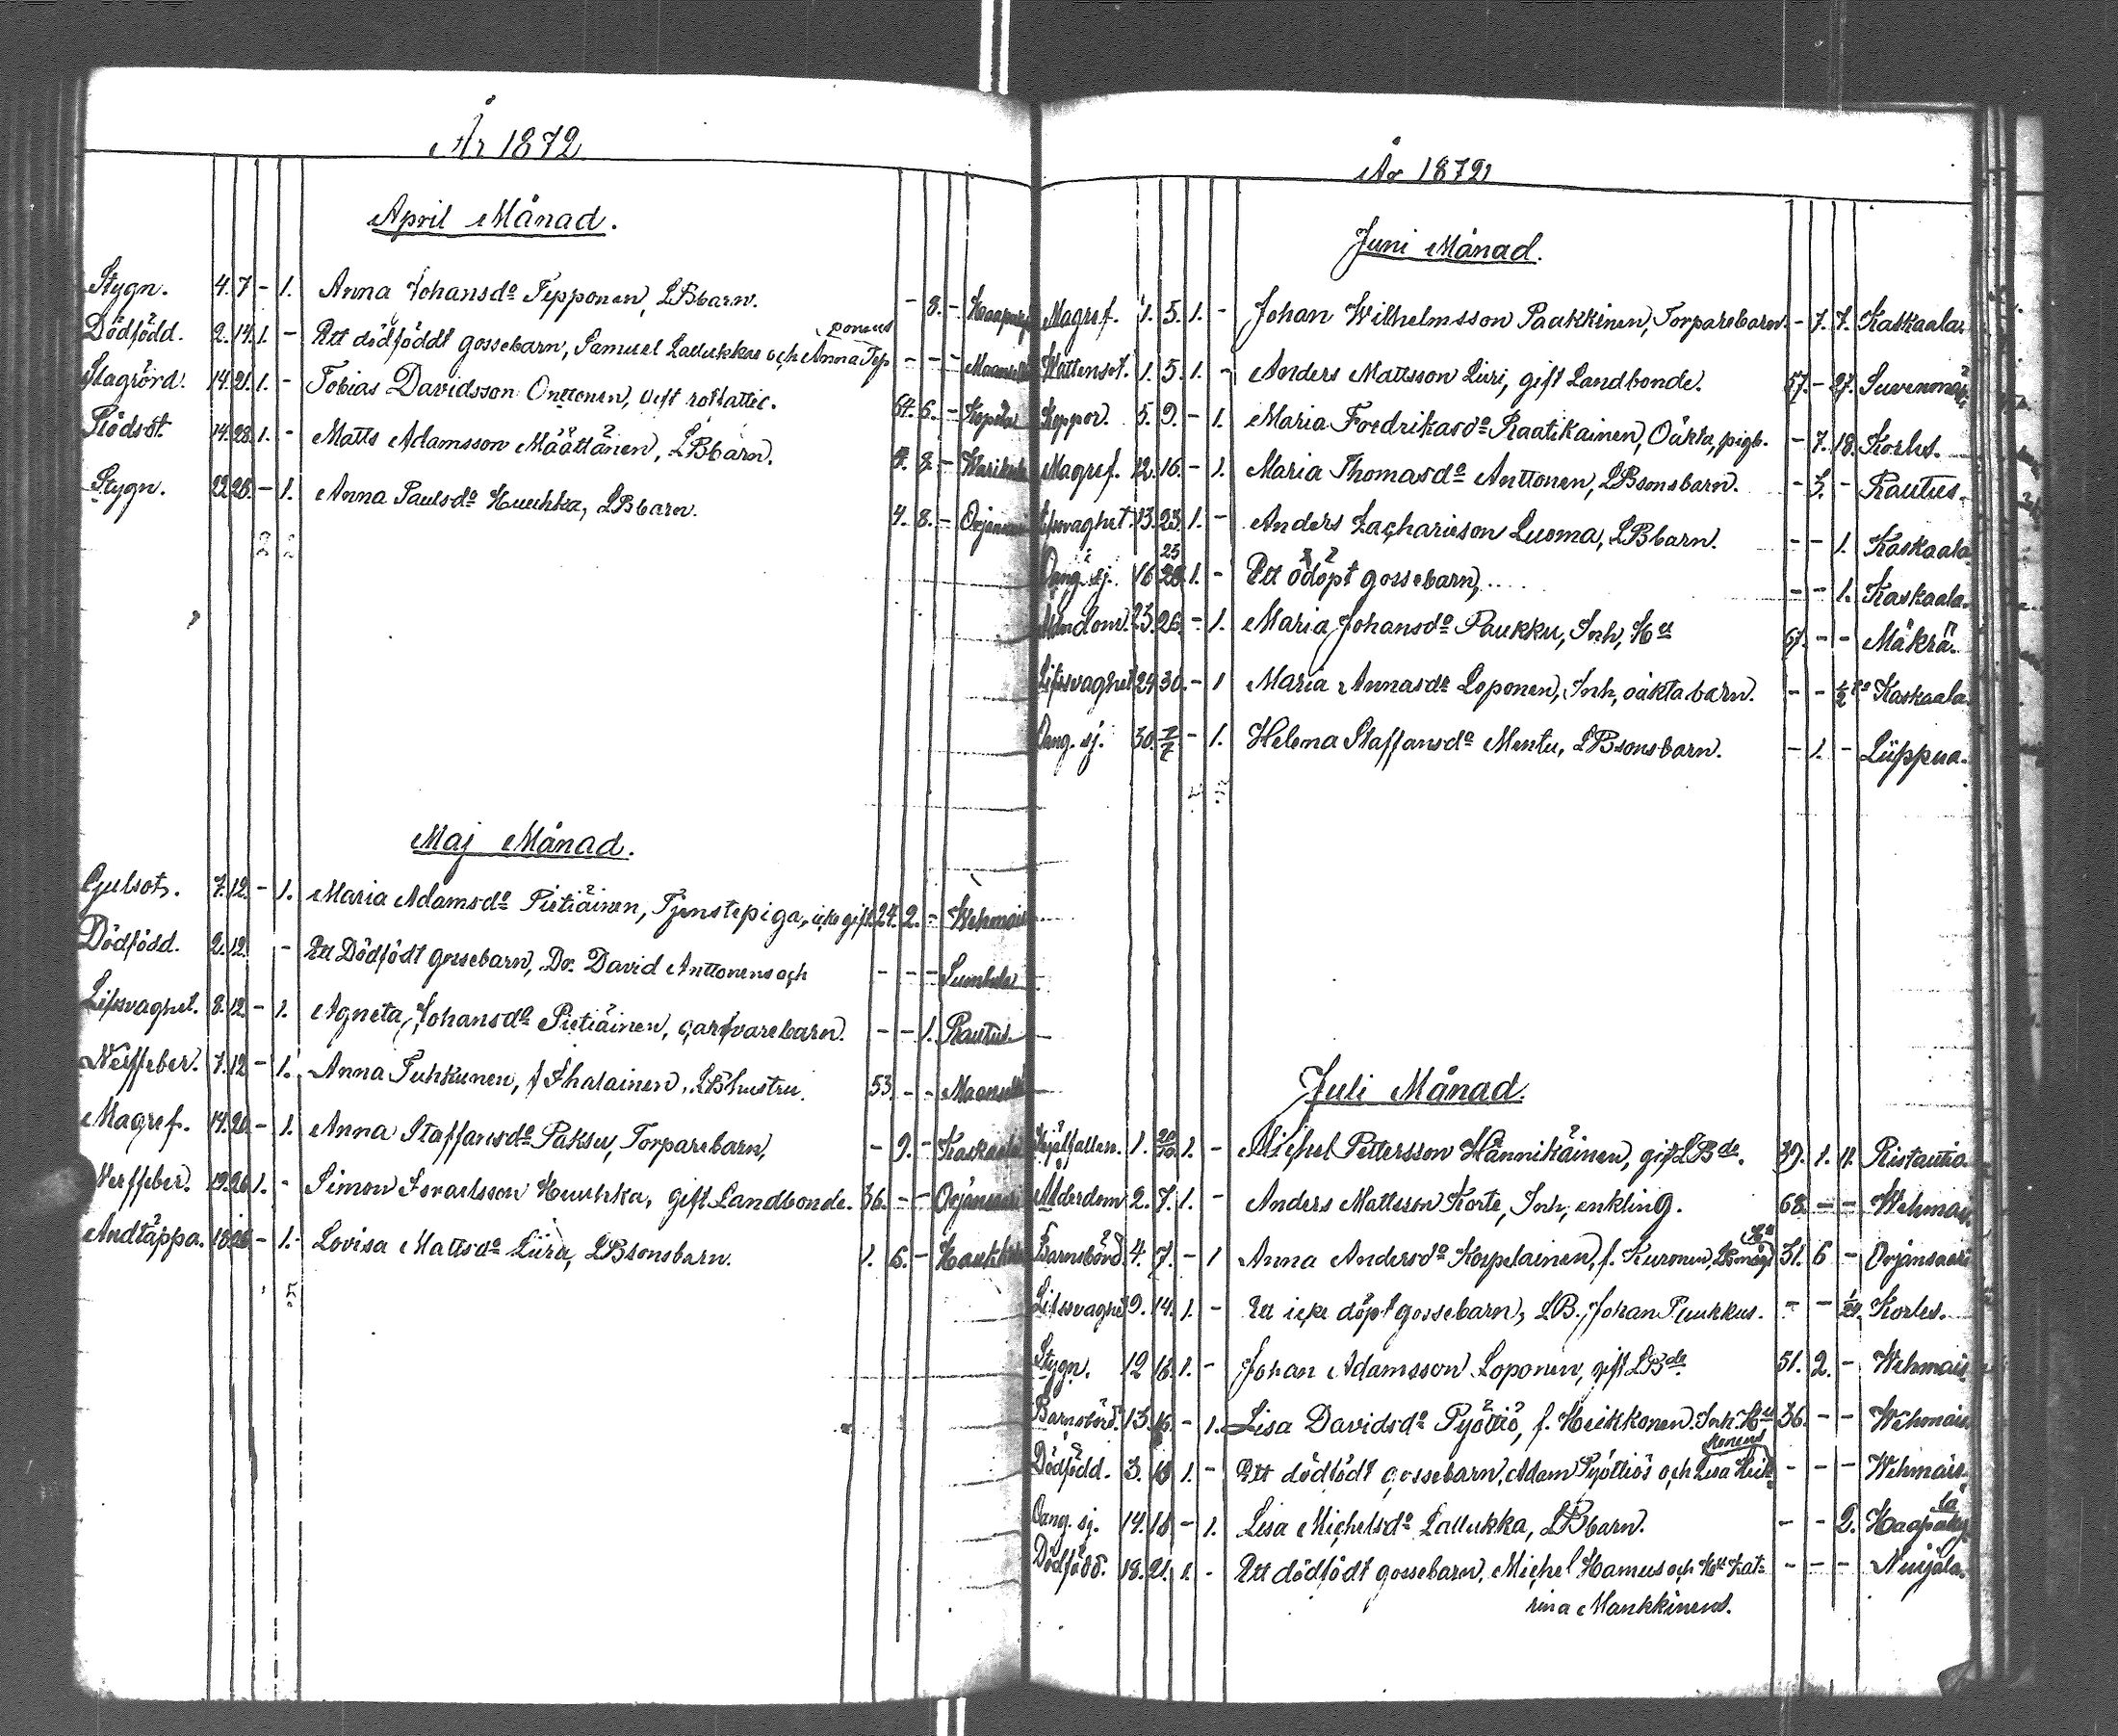 År 1872
April Månad.
Stygn. 4. 7 - 1. Anna Johansdr Tepponen, LBbarn. - 8. -
Dödfödd. 2. 14. 1. - Ett dödföddt gossebarn, Samuel Lallukkas och Anna Tep
ponens - - -
Slagrörd. 14. 21. 1. - Tobias Davidsson Onttonen, gift 64. 6. -
Rödsot. 14. 28. 1. - Matts Adamsson Määttänen, LBbarn. 8. -
Stygn. 22 28. - 1. Anna Paulsdr Huuhka, LBbarn. 4. 8. -
Maj Månad.
Gulsot. 7. 12. - 1. Maria Adamsdr Pietiäinen, Tjenstepiga, icke gift. 24. 2. - Wehmais
Dödfödd. 2. 12. - Ett Dödfödt gossebarn, David Anttonens och - - - Sumbula
Lifsvaghet. 8. 12. - 1. Agneta Johansdr Pietiäinen, garfvarebarn. - - 1. Rautus
Nerffeber. 7. 12 - 1. Anna Tuhkunen, f Ihalainen, LBhustru. 53. - - Maanselkä
Magref. 14. 20. - 1. Anna Staffansdr Paksu, Torparebarn, - 9. - Kaskaala
Nerffeber. 19. 26 1. - Simon Israelsson Huuhka, gift Landbonde. 36. - - Orjansaari
Andtäppa. 18. 26 - 1. Lovisa Mattsdr Liira, LBsonsbarn. 1. 5. -
År 1872
Juni Månad.
Magref. 1. 5. 1. - Johan Wilhelmsson Paakkinen, Torparebarn. - 7. 7. Kaskaala.
Wattensot. 1. 5. 1. - Anders Mattsson Liiri, gift Landbonde. 57. - 27.
Koppor. 5. 9. - 1. Maria Fredrikasdr Raatikainen, Oäkta, pigb. - 7. 18. Korles.
Magref. 12. 16. - 1. Maria Thomasdr Anttonen, LBsonsbarn. - 3. - Rautus.
Lifsvaghet. 13. 23. 1. - Anders Zachariæson Luoma, LBbarn. - - 1. Kaskaala.
Oang. sj. 16 25 1. - Ett odöpt gossebarn, - - 1. Kaskaala.
Ålderdom. 23. 26. - 1. Maria Johansdr Paukku, Inh, Hu 67. - - Mäkrä.
Lifsvaghet 24. 30. - 1 Maria Annasdr Loponen, Inh, oäkta barn. - - 1/2 Kaskaala.
Oang. sj. 30. 7/7 - 1. Helena Staffansdr Mentu, LBsonsbarn. - 1. - Liippua.
Juli Månad.
1. 1. - Michel Pettersson Hännikäinen, gift LBde. 39. 1. 11. Ristautio.
Ålderdom 2. 7. 1. - Anders Mattsson Korte, Inh, enkling. 68. - - Wehmais.
Barnsbörd. 4. 7. - 1 Anna Andersdr Korpelainen, f. Kuronen, LBmågs
Hu 31. 6 - Orjansaari
Lifsvaghet 9. 14. 1. - Ett icke döpt gossebarn, LB. Johan Puukkus. - - Korles.
Stygn. 12 16. 1. - Johan Adamsson Loponen, gift LBde 51. 2. - Wehmais.
Barnsbörd. 13. 16. - 1. Lisa Davidsdr Pyöttiö, f. Heikkonen. Inh. Hu 36. - - Wehmais.
Dödfödd. 3. 1. - Ett dödfödt gossebarn, Adam Pyöttiös och Lisa Heik
konens - - - Wehmais.
Oang. sj. 14. 18 - 1. Lisa Michelsdr Lallukka, LBbarn. - - 2.
Dödfödd. 18. 21. 1. - Ett dödfödt gossebarn, Michel Hamus och Hu Kat-
rina Mankkinens. - - - Nuijala.